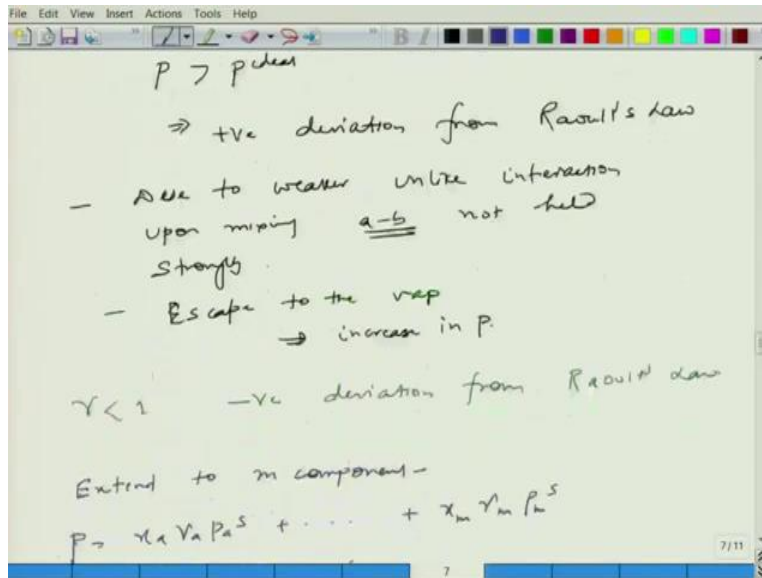 File Edit View Insert Actions Tools Help
P > P ideal
⇒ +ve deviation from Raoult's Law
- Due to weaker unlike interaction
upon mixing a-b not held
strongly
- Escape to the vap
⇒ increase in P.
γ < 1 -ve deviation from Raoult Law
Extend to m component-
P = xₐ γₐ Pₐˢ + .... + xₘ γₘ Pₘˢ
7/11
7